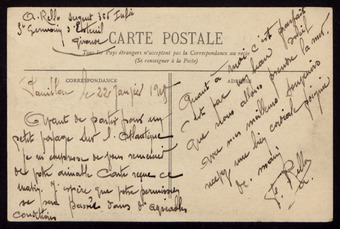 A. Rello Sergent 356 Infie
St Germain d'Esteuil
Gironde
CARTE POSTALE
Tous les Pays étrangers n'acceptent pas la Correspondance au recto
(Se renseigner à la Poste)
CORRESPONDANCE
le 22 Janvier 1915
Avant de partir pour un
petit voyage sur l'Atlantique
je m'empresse de vous remercier
de votre aimable Carte reçue ce
matin. J'espère que votre permission
se sera passée dans d'agréables
conditions
Quant à moi c'est parfait
que nous allons prendre la mer.
mes meilleurs
recevez une bien cordiale poignée
de main
Rello